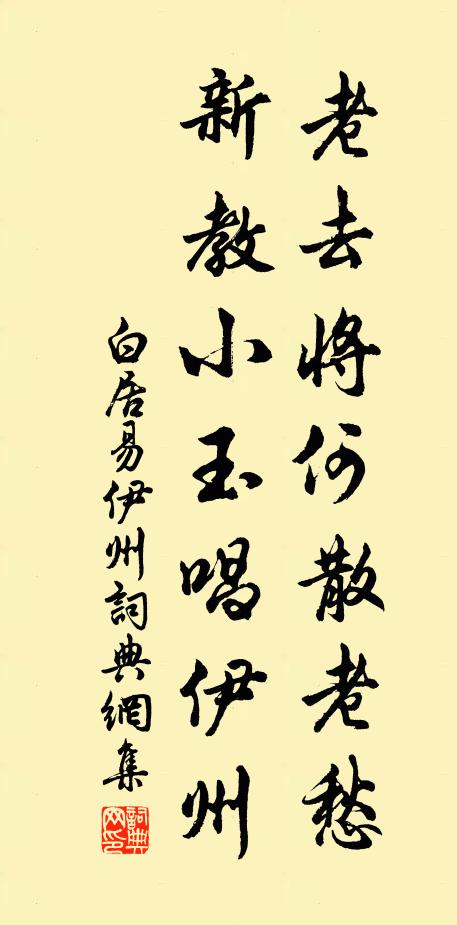 老去將何散老愁
新教小玉唱伊州
白居易伊州詞典網集
詞典网印